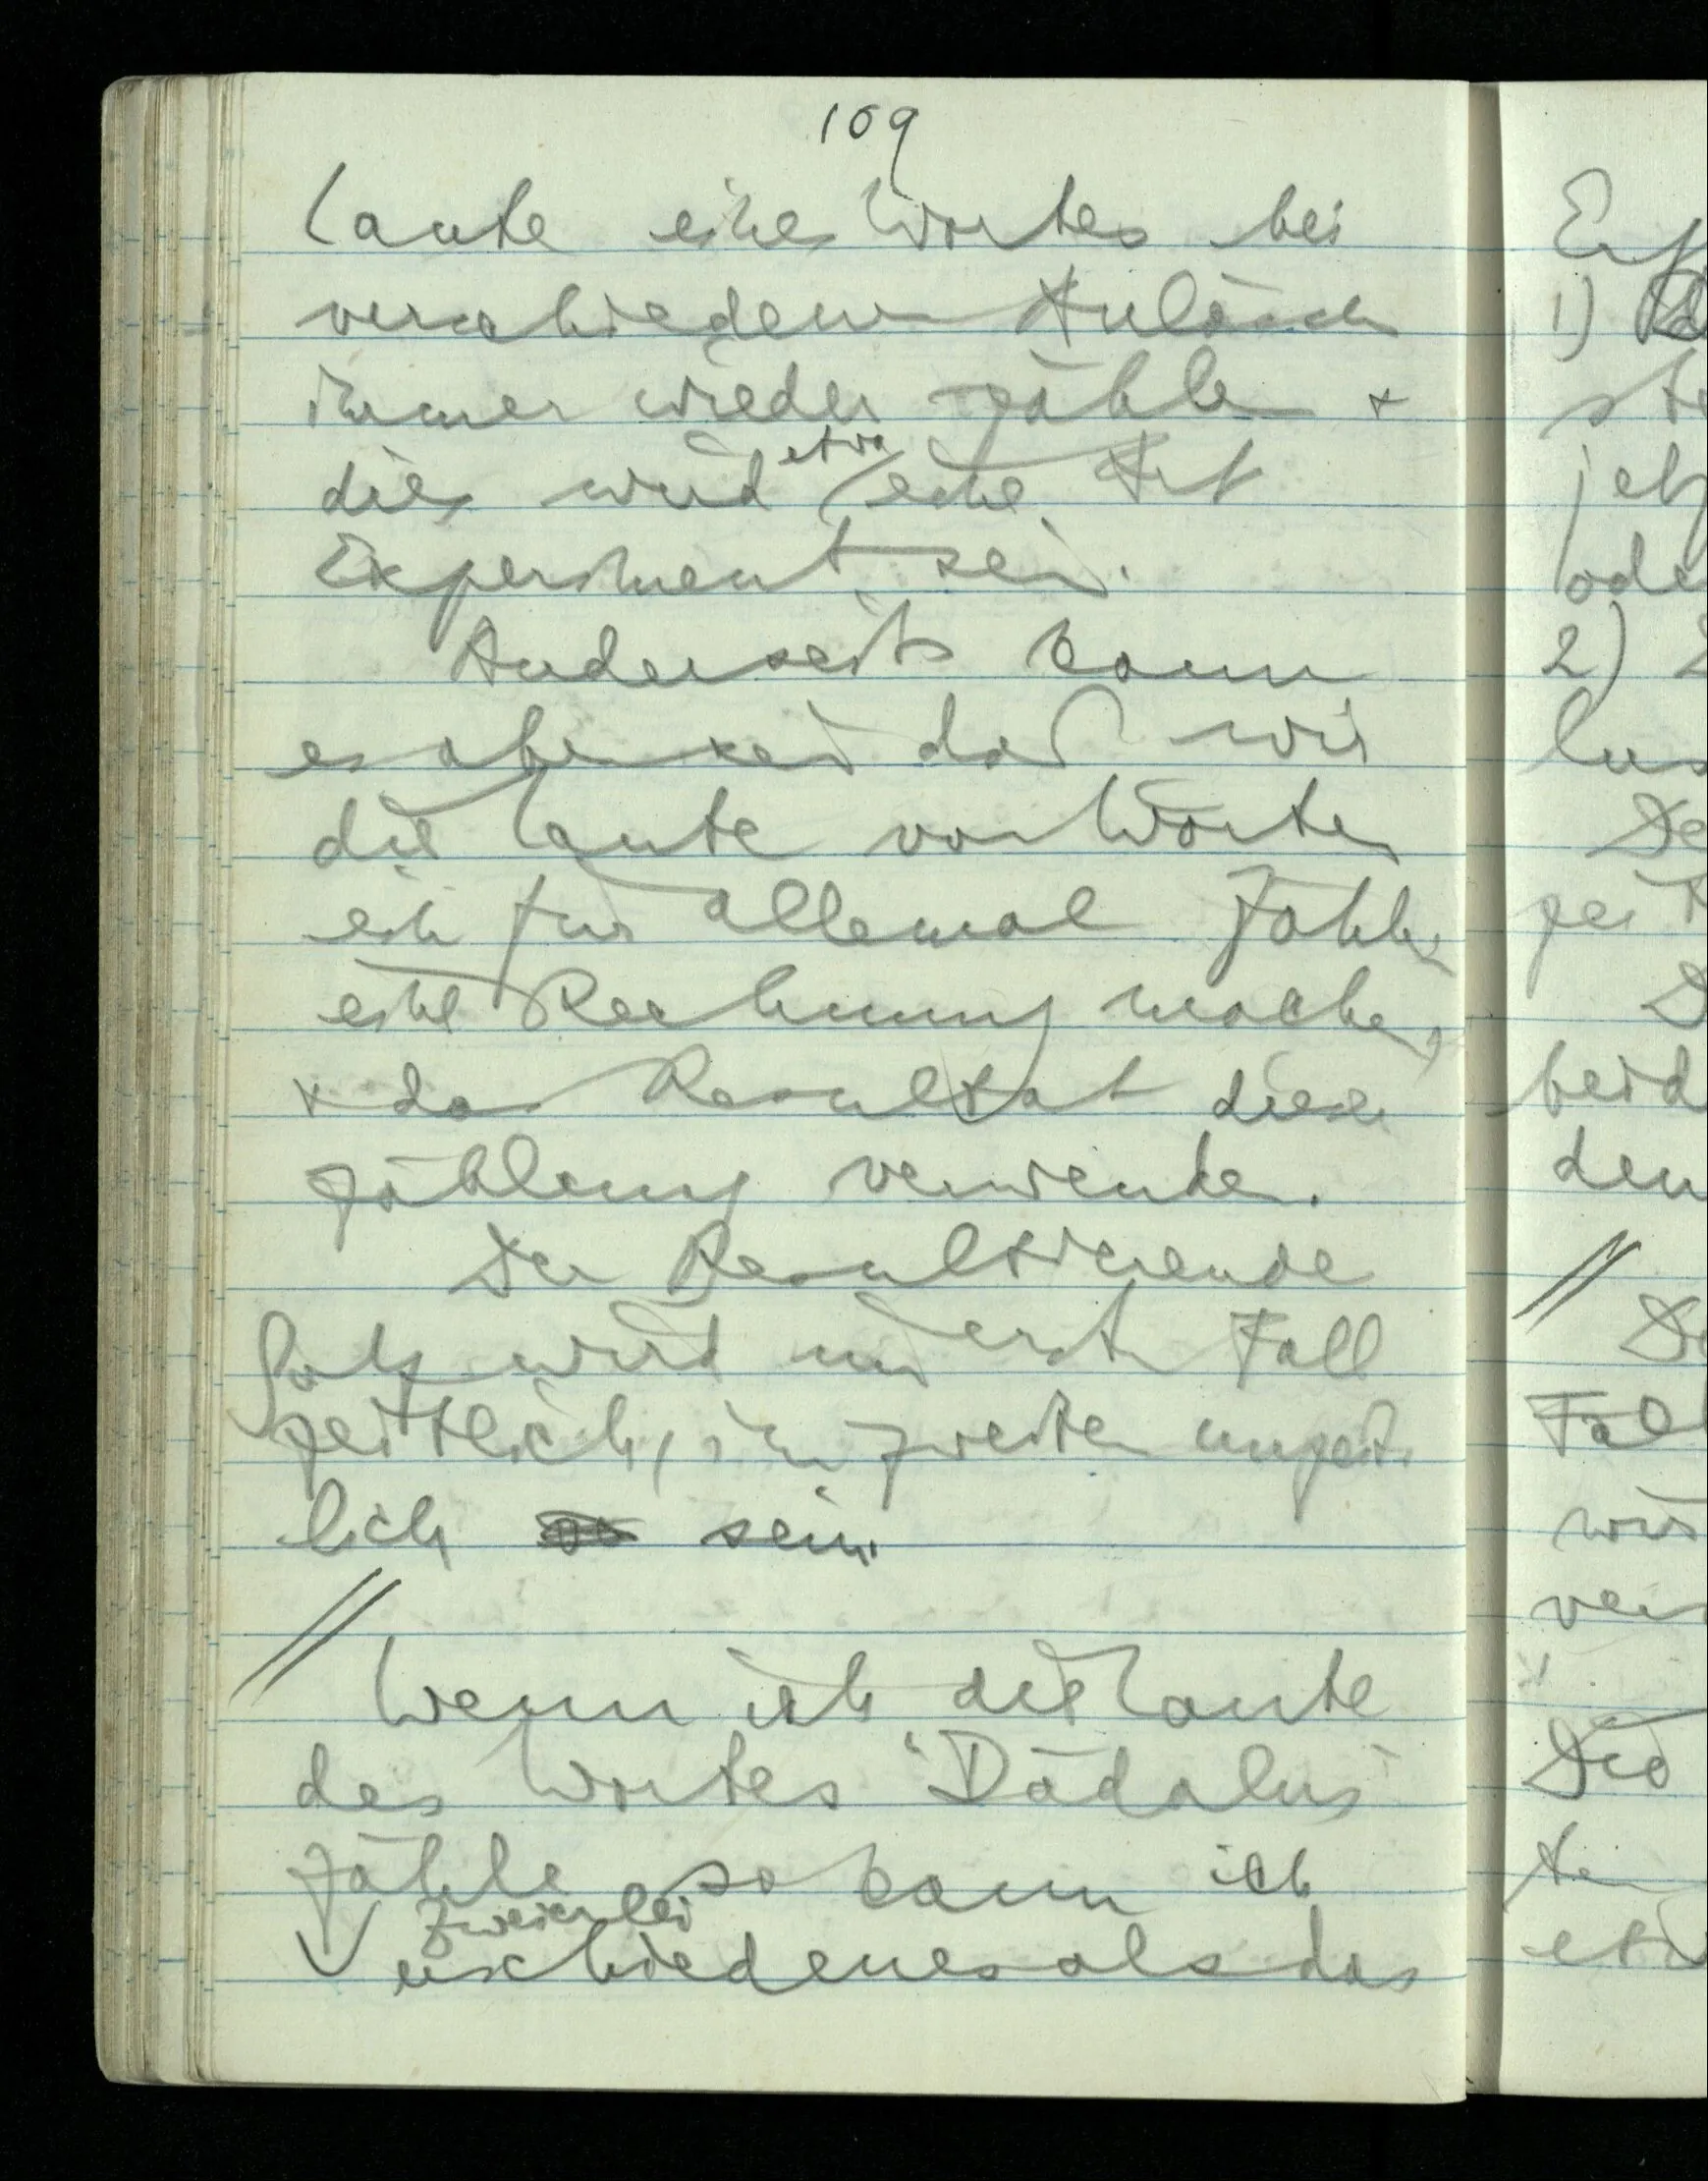 109
Laute eines Wortes bei
verschiedenen Anlässen
immer wieder zählen +
dies wird etwa eine Art
Experiment sein.
Anderseits kann
es aber sein daß wir
die Laute von Worten
ein für allemal zählen
eine Rechnung machen,
+ das Resultat dieser
Zählung verwenten.
Der Resultierende
Satz wird im ersten Fall
zeitlich, im zweiten unzeit-
lich sein.
// Wenn ich die Laute
des Wortes "Dädalus"
zähle so kann ich
zweierlei
verschiedenes als das
1)
2)
//